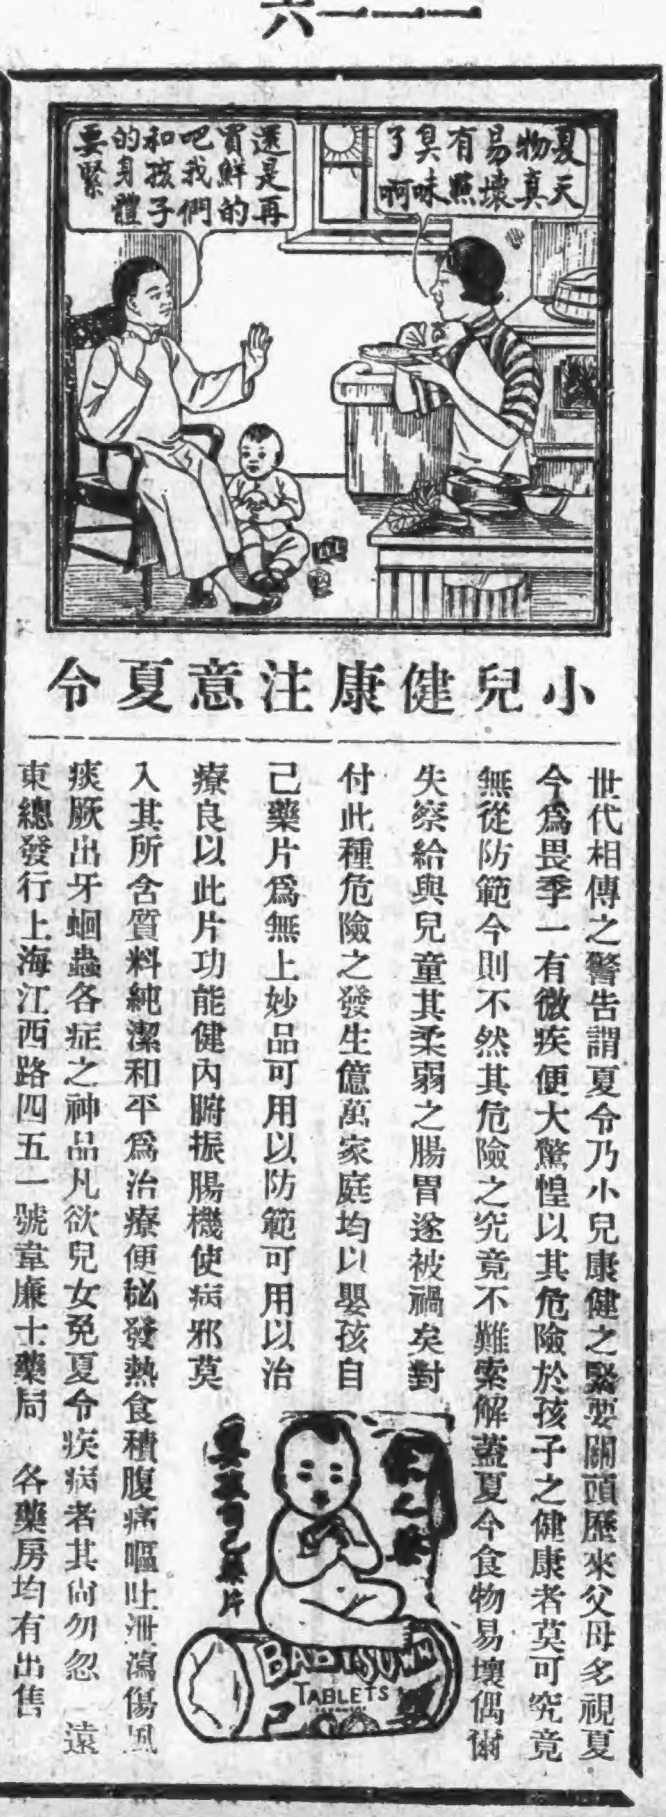 六一一一
夏天
物真
易壞
有點
臭味
了啊
還是再
買鮮的
吧我們
和孩子
的身體
要緊
小兒健康注意夏令
世代相傳之警告謂夏令乃小兒康健之緊要關頭歷來父母多視夏
令爲畏季一有微疾便大驚惶以其危險於孩子之健康者莫可究竟
無從防範今則不然其危險之究竟不難索解蓋夏令食物易壞偶爾
失察給與兒童其柔弱之腸胃遂被禍矣對
付此種危險之發生億萬家庭均以嬰孩自
己藥片爲無上妙品可用以防範可用以治
療良以此片功能健內腑振腸機使病邪莫
入其所含質料純潔和平爲治療便秘發熱食積腹痛嘔吐泄瀉傷風
痰厥出牙蛔蟲各症之神品凡欲兒女免夏令疾病者其尚勿忽 遠
東總發行上海江西路四五一號韋廉士藥局 各藥房均有出售
嬰孩自己藥片
BABY'S OWN
TABLETS